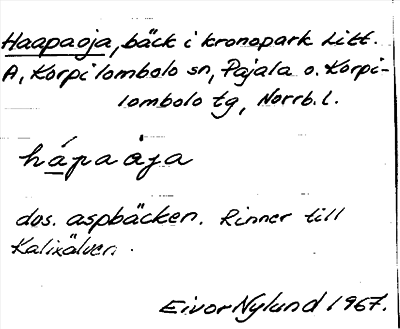 Haapaoja, bäck i kronopark Litt.
A, Korpilombolo sn, Pajala o. Korpi-
lombolo tg, Norrb. l.
hápaòja
dvs. aspbäcken. Rinner till
Kalixälven.
Eivor Nylund 1967.